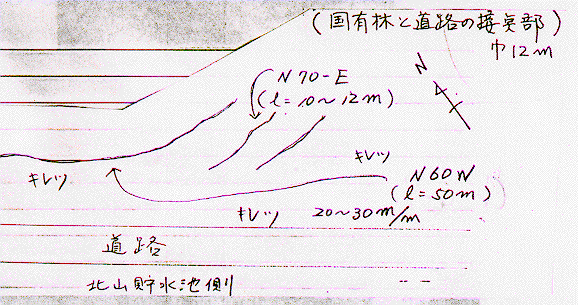 (国有林と道路の接点部)
巾12m
N
N70-E
(l=10~12m)
キレツ
N60W
(l=50m)
キレツ
キレツ 20~30m/m
道路
北山貯水池側